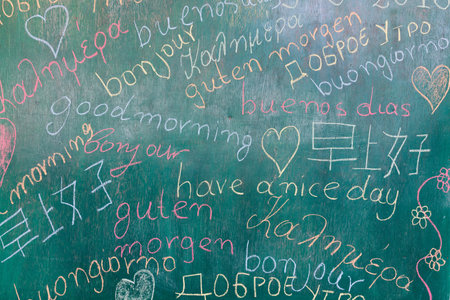 buenos
2016
Καλημέρα
bonjour
Καλημέρα
guten morgen
ДОБРОЕ УТРО
buongiorno
good morning
buenos dias
早上好
morning
bonjour
早上好
have a nice day
guten
morgen
Καλημέρα
buongiorno
bonjour
ДОБРОЕ УТРО